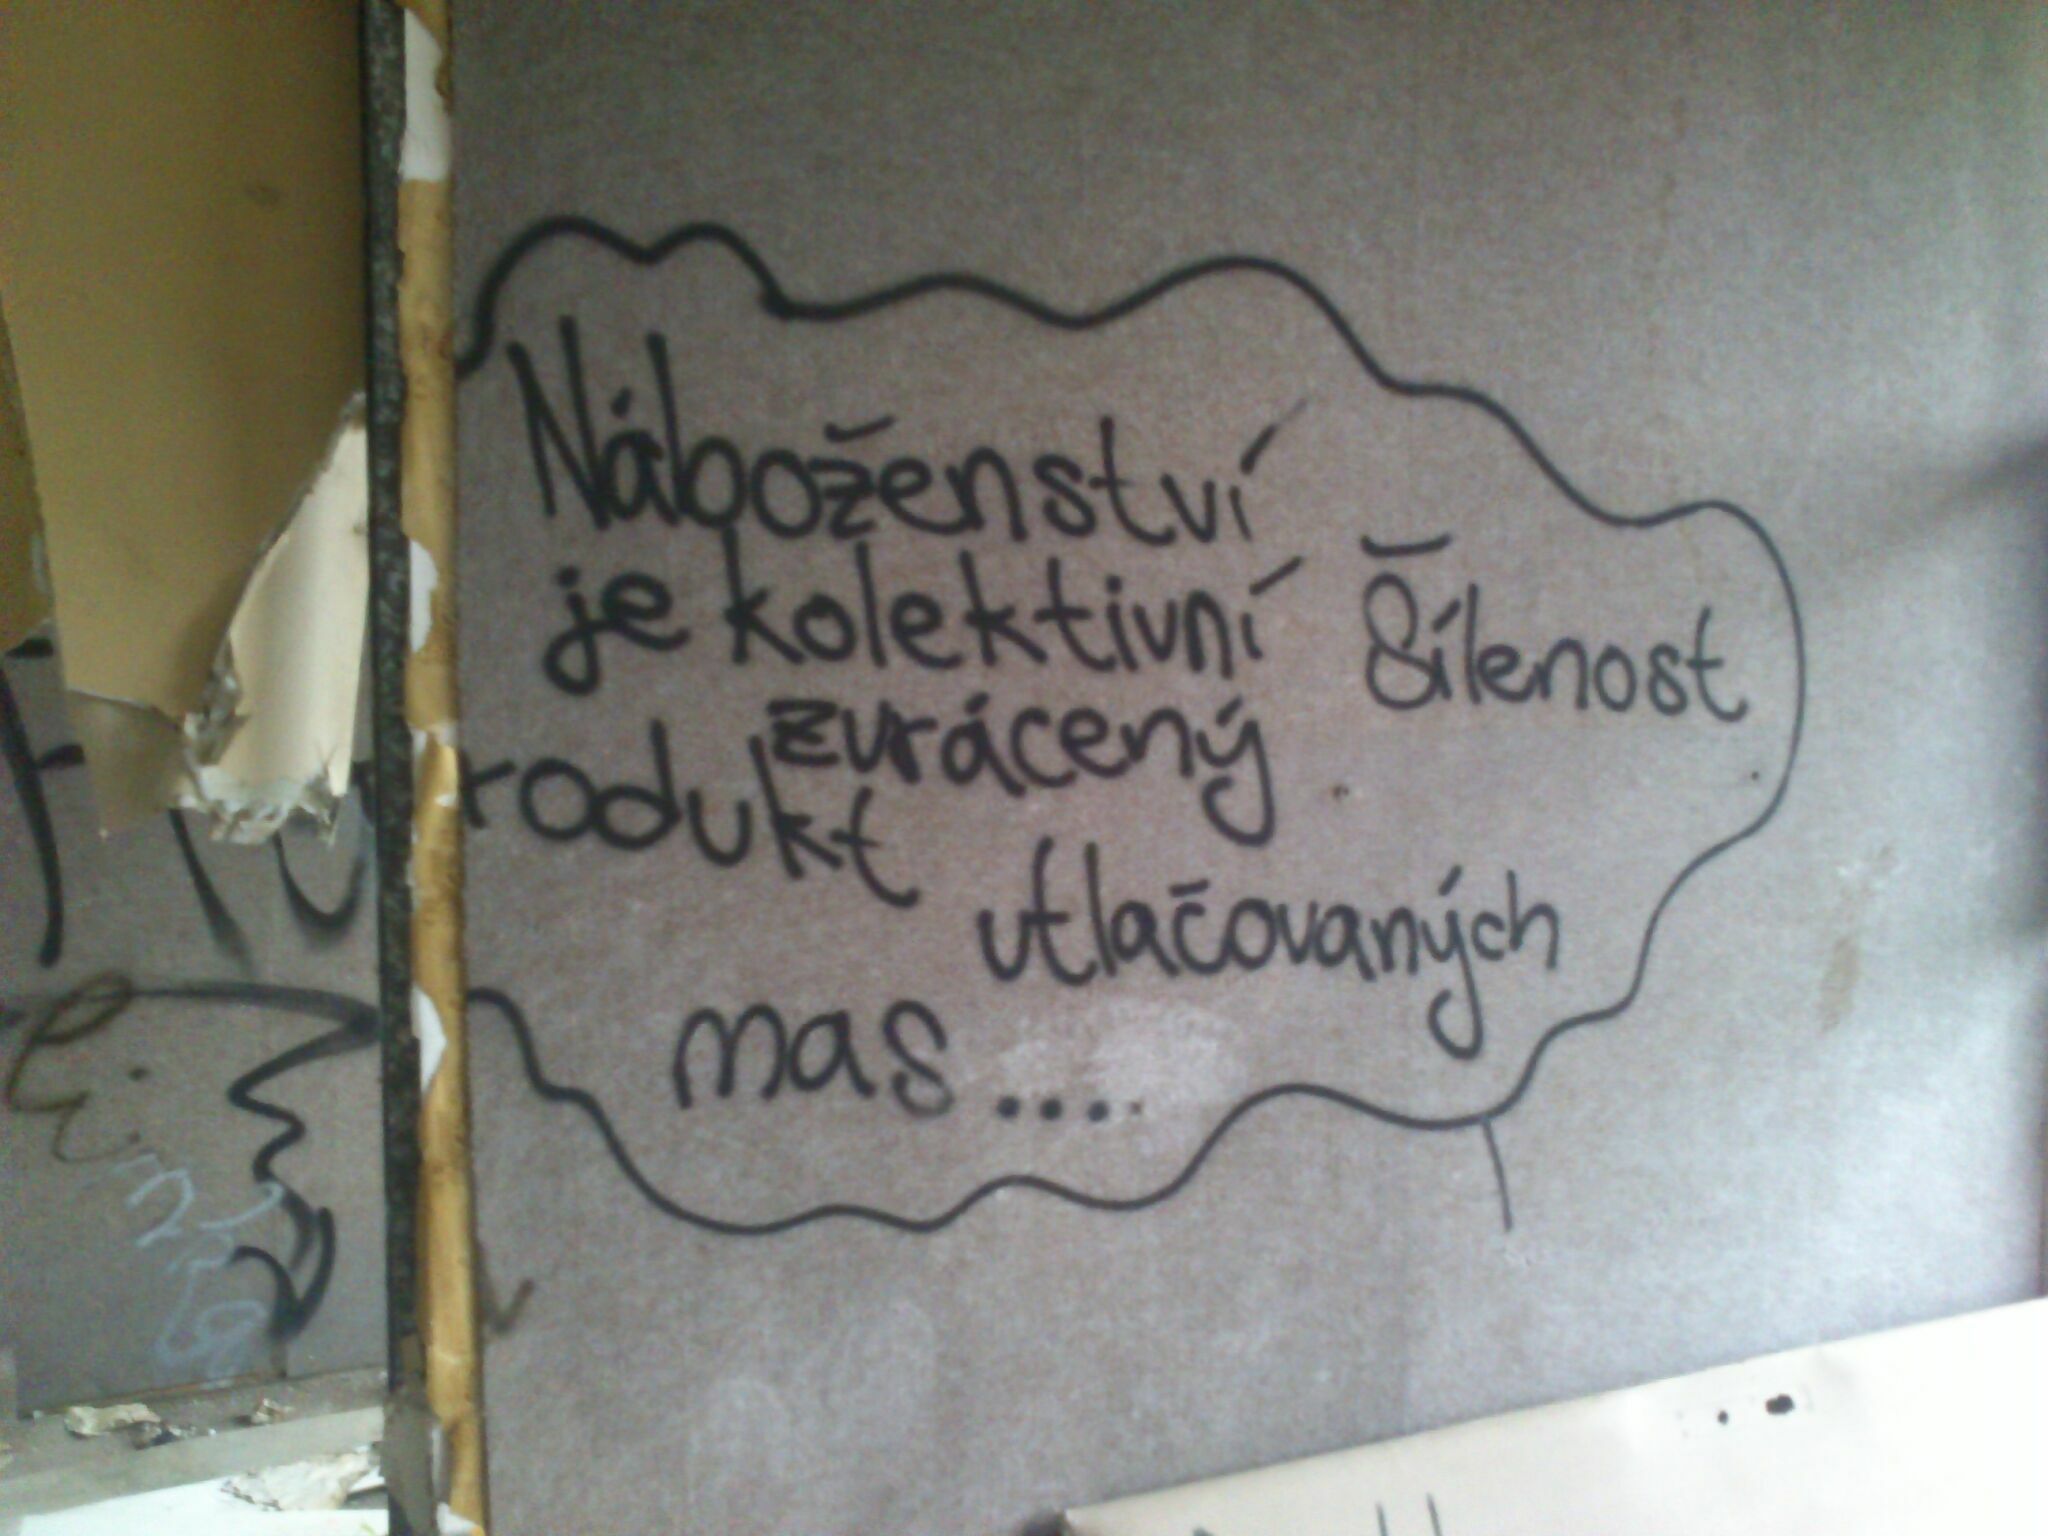 Náboženství
je kolektivní šílenost
zvrácený
rodukt
utlačovaných
mas...